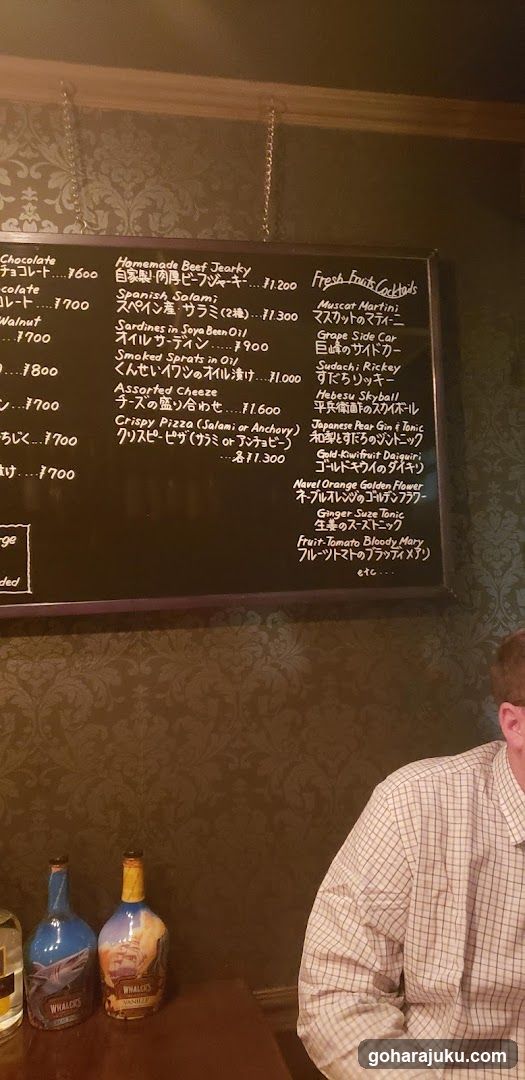 Chocolate
チョコレート....¥600
ocolate
コレート....¥700
Walnut
....¥700
....¥800
ン....¥700
ちじく...¥700
漬け....¥700
rge
ded
Homemade Beef Jearky
自家製・肉厚ビーフジャーキー...¥1.200
Spanish Salami
スペイン産・サラミ(2種)...¥1.300
Sardines in Soya Been Oil
オイルサーディン.....¥900
Smoked Sprats in Oil
くんせいイワシのオイル漬け...¥1.000
Assorted Cheeze
チーズの盛り合わせ....¥1.600
Crispy Pizza (Salami or Anchovy)
クリスピーピザ(サラミ or アンチョビー)
...各¥1.300
Fresh Fruits Cocktails
Muscat Martini
マスカットのマティーニ
Grape Side Car
巨峰のサイドカー
Sudachi Rickey
すだちリッキー
Hebesu Skyball
平兵衛酢のスカイボール
Japanese Pear Gin & Tonic
和梨とすだちのジントニック
Gold-Kiwifruit Daiquiri
ゴールドキウイのダイキリ
Navel Orange Golden Flower
ネーブルオレンジのゴールデンフラワー
Ginger Suze Tonic
生姜のスーズトニック
Fruit-Tomato Bloody Mary
フルーツトマトのブラッディメアリ
etc...
WHALER'S
WHALER'S
VANILLE
goharajuku.com